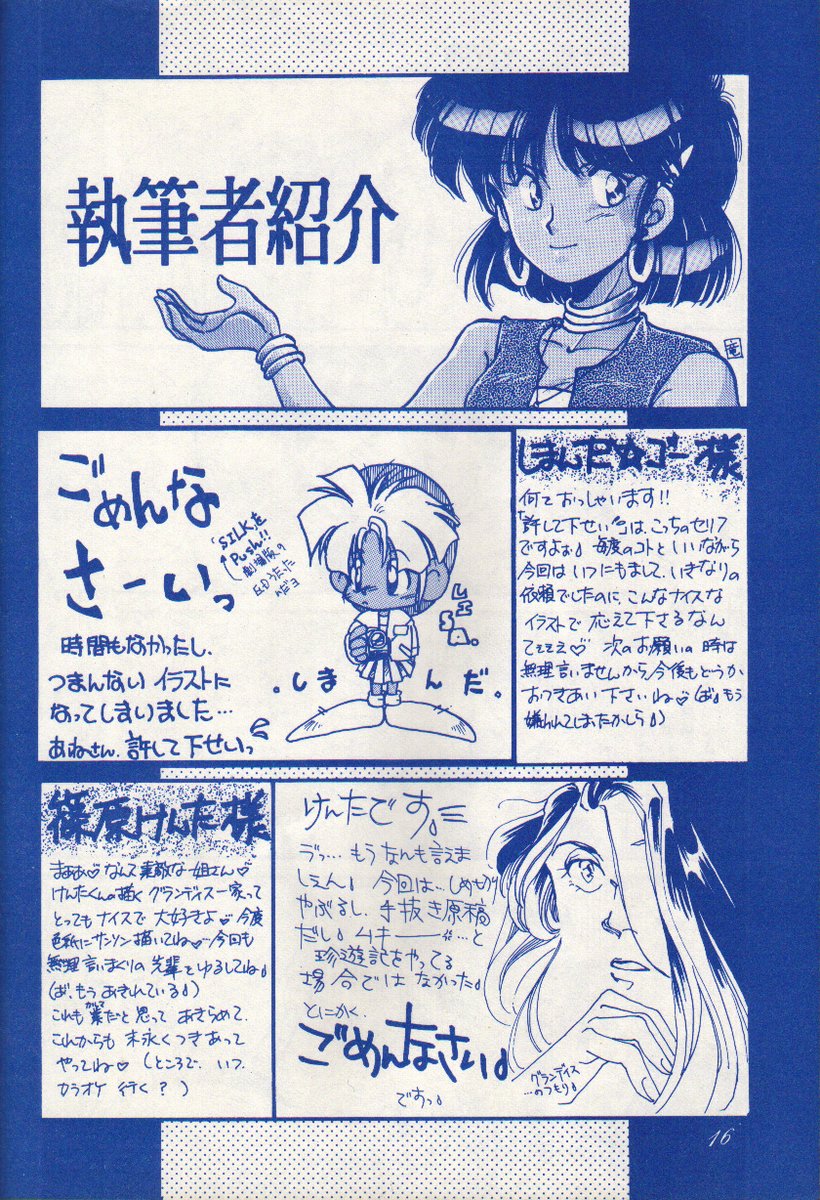 執筆者紹介
竜
ごめんな
さーいっ
「SILKを
Push!!
劇場版の
EDうたった
んだヨ
時間もなかったし、
つまんない イラストに
なってしまいました…
あねさん、許して下せいっ
。しまんだ。
しまんだ☆ゴー様
何ておっしゃいます!!
「許して下せい」は、こっちのセリフ
ですよぉ♪毎度のコトといいながら
今回は いつにもまして、いきなりの
依頼でしたのに こんなナイスな
イラストで 応えて下さるなん
てええ♡ 次のお願いの時は
無理言いませんから、今後もどうか
おつきあい下さいね♡(ば♪もう
嫌われてしまったかしら♪)
篠原けんた様
まぁぁ♡なんて素敵な姉さん♡
けんたくんの描く グランディス一家って
とってもナイスで 大好きよ♡今度
色紙にサンソン描いてね♡今回も
無理言いまくりの先輩とゆるしてね♪
(ば、もう あきれている♪)
これも業だと思って あきらめて、
これからも 末永くつきあって
やってね♡(ところで、いつ、
カラオケ 行く?)
けんたです。
ゔっ… もう なんも言えま
しぇん♪ 今回は…しめきり
やぶるし、手抜き原稿
だし♪ ムキーー…と
珍遊記をやってる
場合では なかった♪
とにかく、
ごめんなさい♪
ですっ♪
グランディス
…のつもり♪
16